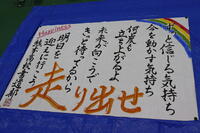 っと信じる気持ち
今を動かす気持ち
何度も
立ち上がるよ
未来が向こうで
きっと待ってるから
走り出せ
明日を
迎えに行こう
Happiness